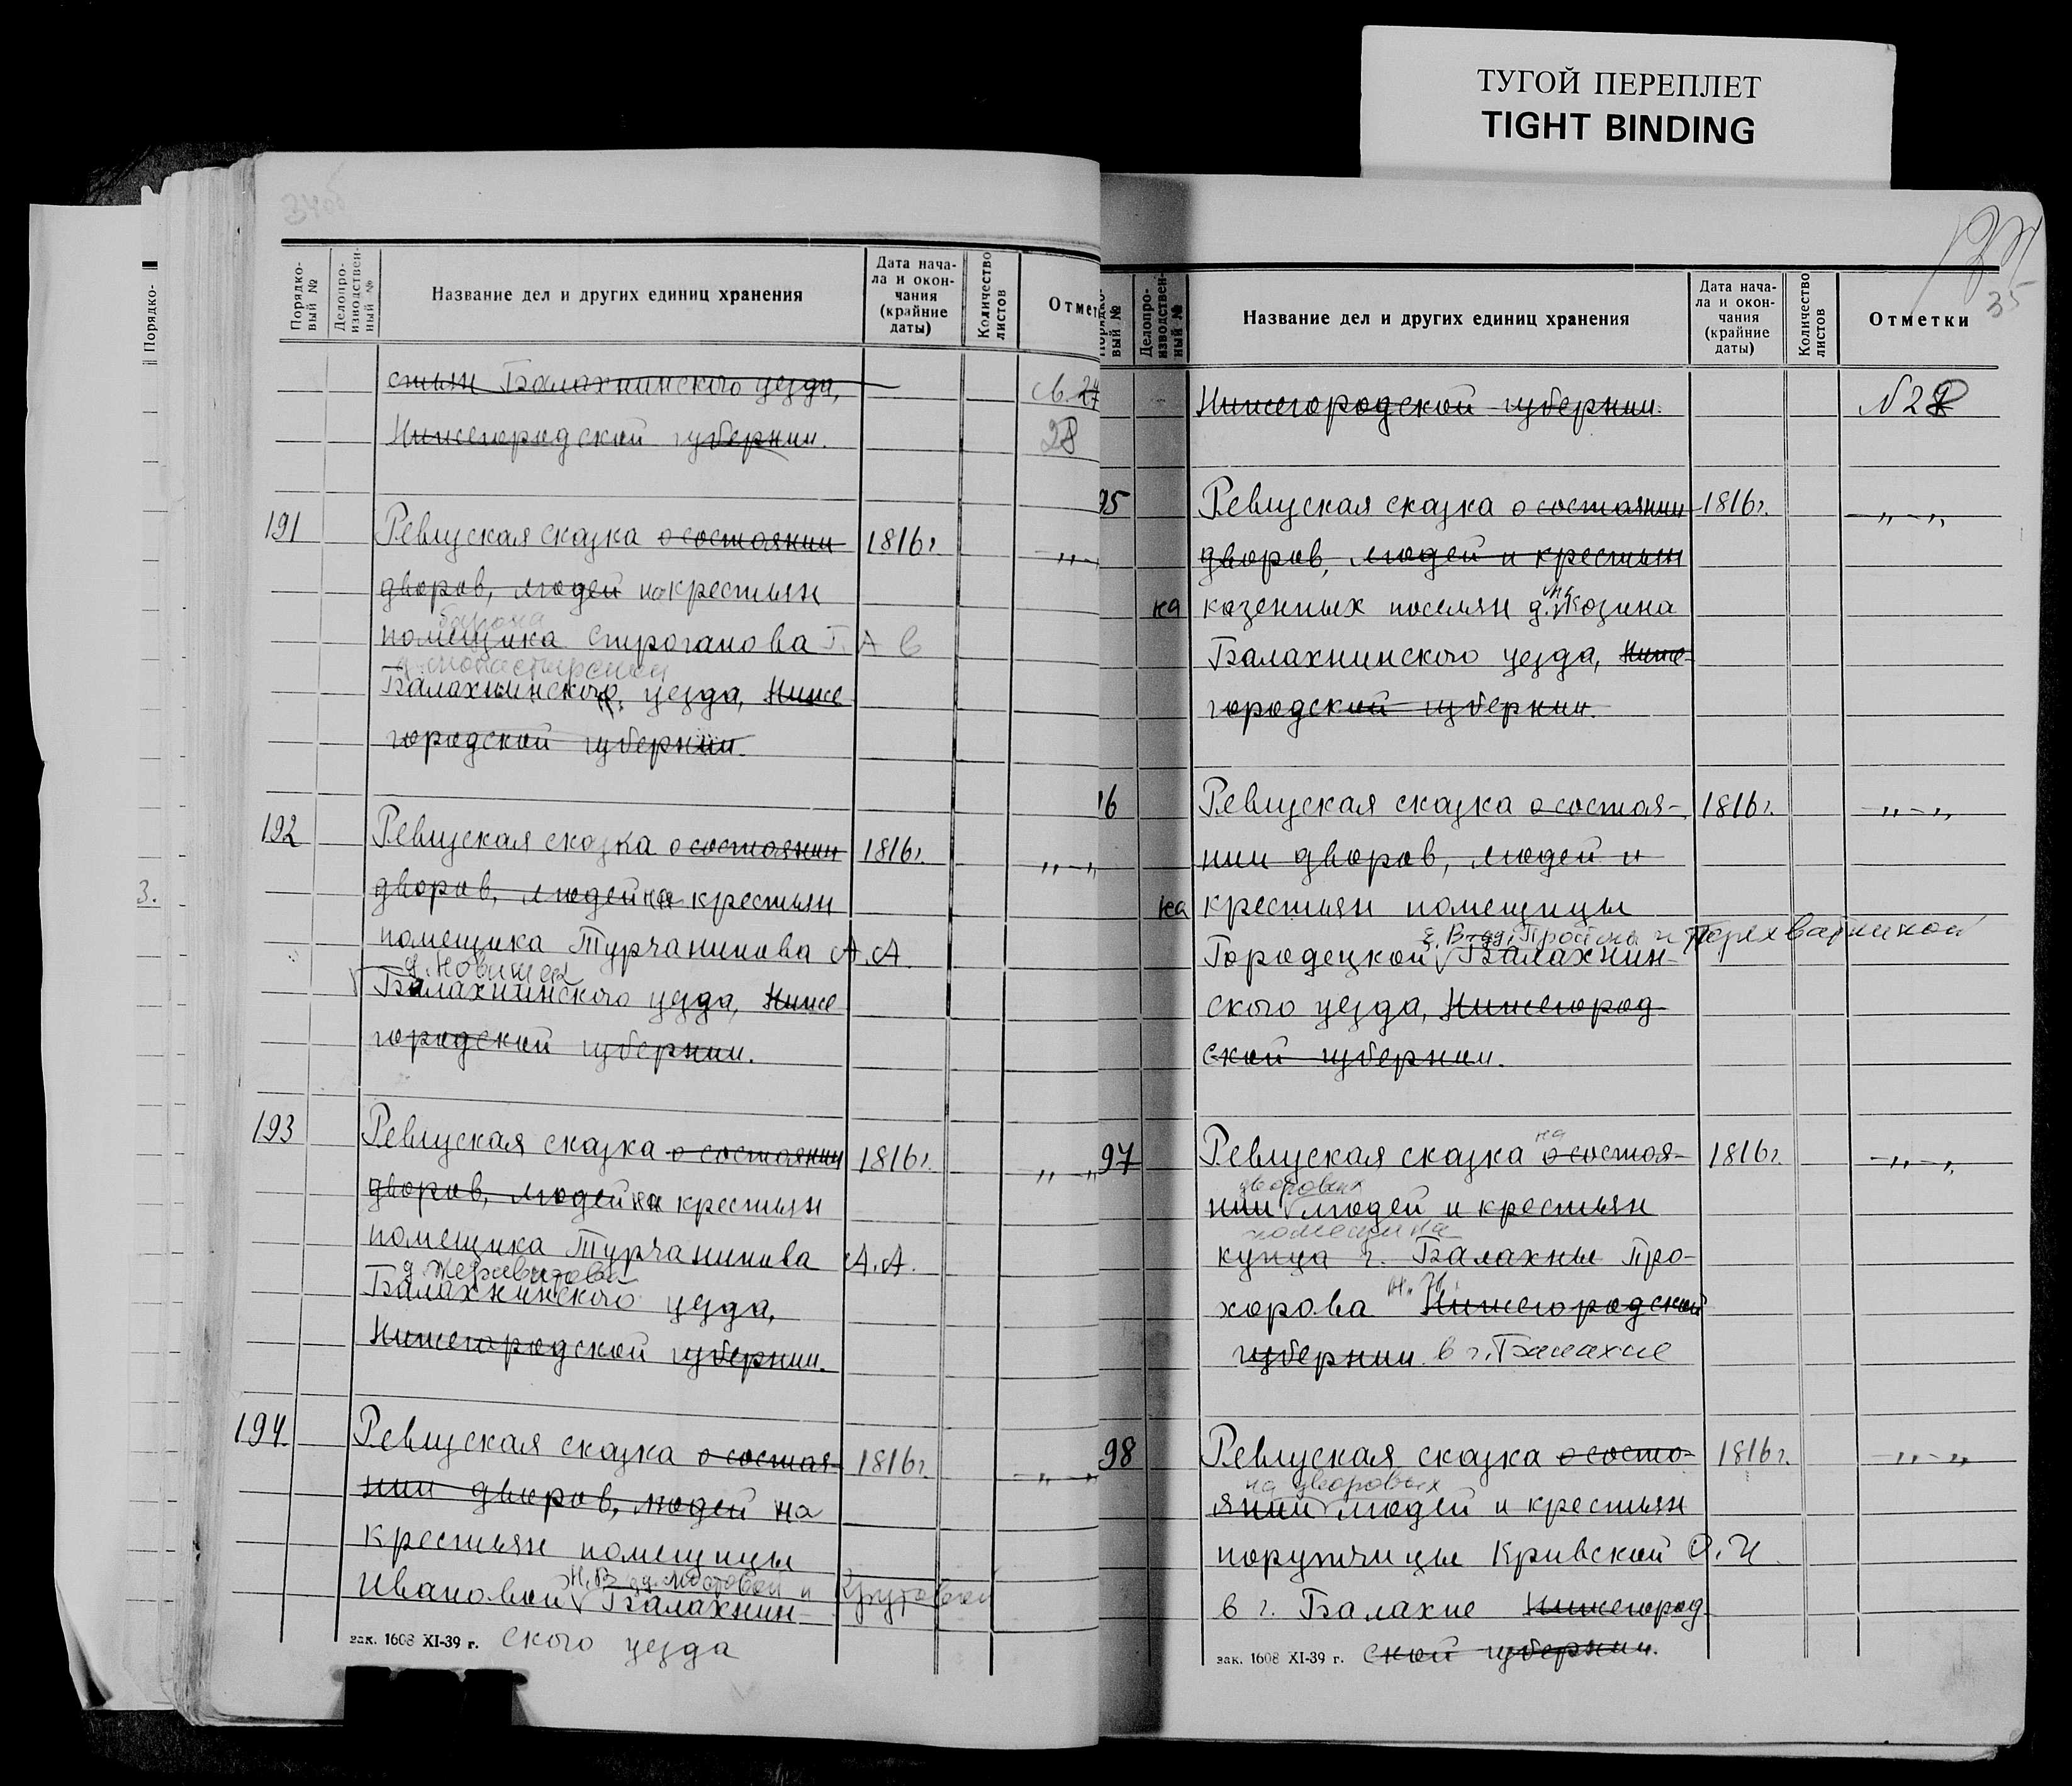 ТУГОЙ ПЕРЕПЛЕТ
TIGHT BINDING
Порядко-
3.
Порядко-
вый №
Делопро-
изводствен-
ный №
Название дел и других единиц хранения
Дата нача-
ла и окон-
чания
(крайние
даты)
Количество
листов
Отмет
стьян Балахнинского уезда,
св. 27
Нижегородской губернии.
28
191
Ревизская сказка о состоянии
1816г
дворов, людей и на крестьян
барона
помещика Строганова Г. А в
д. Монастырской
Балахнинского уезда, Ниже
городской губернии.
192
Ревизская сказка о состоянии
1816г.
дворов, людей на крестьян
помещика Турчанинова А.А.
д. Новишек
Балахнинского уезда, Ниже
городской губернии.
193
Ревизская сказка о состоянии
1816г.
дворов, людей на крестьян
помещика Турчанинова А.А.
Балахнинского уезда,
Нижегородской губернии.
194.
Ревизская сказка о состоя-
1816г.
нии дворов, людей на
крестьян помещицы
Н.В. и
Ивановой Балахнин-
зак. 1608 XI-39 г.
ского уезда
35
вый №
Делопро-
изводствен-
ный №
Название дел и других единиц хранения
Дата нача-
ла и окон-
чания
(крайние
даты)
Количество
листов
Отметки
Нижегородской губернии.
95
Ревизская сказка о состоянии
1816г.
дворов, людей и крестьян
на казенных поселян д. Козина
Балахнинского уезда, Ниже-
городской губернии.
Ревизская сказка о состоя-
1816г.
нии дворов, людей и
на крестьян помещицы
Городецкой Балахнин-
ского уезда, Нижегород-
ской губернии.
97
на
Ревизская сказка о состоя-
1816г.
дворовых
нии людей и крестьян
помещика
купца г. Балахны Про-
хорова Нижегородской
губернии в г. Балахне
98
Ревизская сказка о состо-
1816г.
на дворовых
янии людей и крестьян
поручицы Кривской
в г. Балахне Нижегород-
зак. 1608 XI-39 г.
ской губернии.